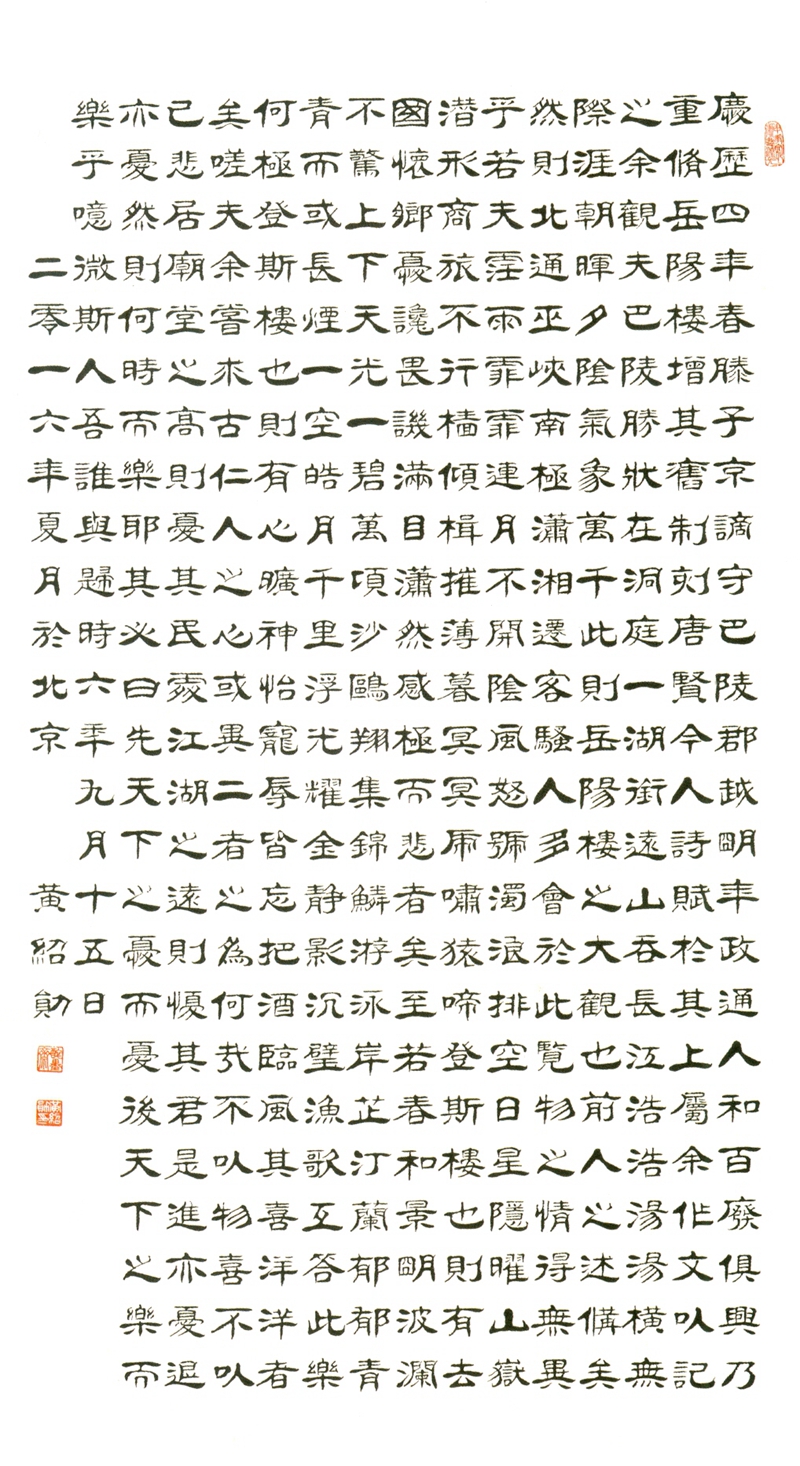 慶歷四年春滕子京謫守巴陵郡越明年政通人和百廢俱興乃
重脩岳陽樓增其舊制刻唐賢今人詩賦於其上屬余作文以記
之余觀夫巴陵勝狀在洞庭一湖銜遠山吞長江浩浩湯湯橫無
際涯朝暉夕陰氣象萬千此則岳陽樓之大觀也前人之述備矣
然則北通巫峽南極瀟湘遷客騷人多會於此覽物之情得無異
乎若夫霪雨霏霏連月不開陰風怒號濁浪排空日星隱曜山嶽
潛形商旅不行檣傾楫摧薄暮冥冥虎嘯猿啼登斯樓也則有去
國懷鄉憂讒畏譏滿目瀟然感極而悲者矣至若春和景明波瀾
不驚上下天光一碧萬頃沙鷗翔集錦鱗游泳岸芷汀蘭郁郁青
青而或長煙一空皓月千里浮光耀金静影沉璧漁歌互答此樂
何極登斯樓也則有心曠神怡寵辱皆忘把酒臨風其喜洋洋者
矣嗟夫余嘗求古仁人之心或異二者之為何哉不以物喜不以
己悲居廟堂之高則憂其民處江湖之遠則憂其君是進亦憂退
亦憂然則何時而樂耶其必曰先天下之憂而憂後天下之樂而
樂乎噫微斯人吾誰與歸時六年九月十五日
二零一六年夏月於北京 黃紹勛